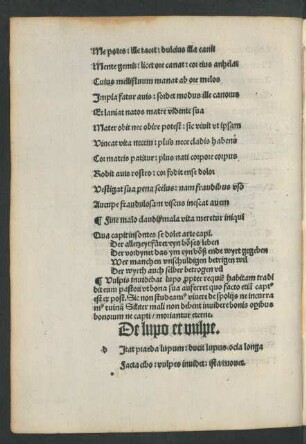 Me potes: ille tacet: dulcius illa canit
Mente gemit: licet ore canat: cor eius anhelat
Cuius mellifluum manat ab ore melos
Impia fatur auis: sordet modus ille canoius
Et laniat natos matre vidente sua
Mater obit nec obire potest: sic vivit vt ipsam
Vincat vita necem: plus necε cladis habens
Cor matris patitur: plus nati corpore corpus
Rodit auis rostro: cor fodit ense dolor
Vestigat sua pena scelus: nam fraudibus vso
Aucupe fraudulosam viscus inescat auem
¶ Fine malo claudi mala vita meretur iniqui
Qua capit insontes se dolet arte capi.
Der allezeyt fürt eyn böses leben
Der wirt ym eyn böß ende wyrt gegeben
Wer manchen vnschuldigen betrigen wil
Der wyrth auch selber betrogen vil
¶ Vulpis inuidebat lupo propter
dit eum pastori vt bona sua auferret quo facto etiā capta
est et post. Sic non studeam⁹ viuere de spolijs ne incurra
m⁹ ruinā Similiter mali non debent inuidere bonis
bonorum ne capti / moriantur
De lupo et vulpe.
d Itat praeda lupum: ducit lupus ocia longa
Facta cibo: vulpes inuidet: ista mouet.